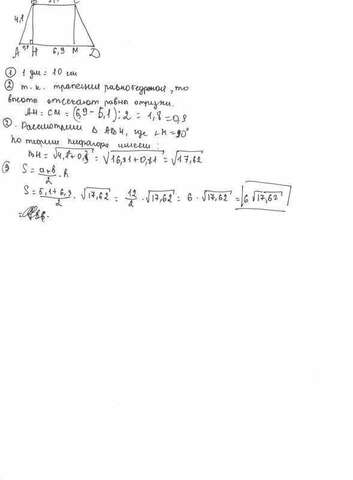 4,1
A H 6,9 M D
① 1 дм = 10 см
② т.к. трапеция равнобедренная, то
высота отсекает равные отрезки.
AH = CM = (6,9 - 5,1) : 2 = 1,8 = 0,9
③ Рассмотрим Δ ABH, где ∠H = 90°
По теореме Пифагора имеем:
BH = √4,1+0,9 = √16,81+0,81 = √17,62
S = a+b/2 · h
S = 5,1+6,9/2 · √17,62 = 12/2 · √17,62 = 6 · √17,62 = 6√17,62